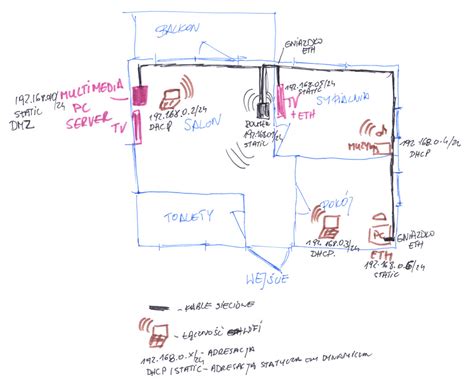 BALKON
GNIAZDKO
ETH
192.168.0.10/24
STATIC
DMZ
MULTIMEDIA
PC
SERVER
TV
192.168.0.2/24
DHCP
SALON
STATIC
192.168.0.5/24
STATIC
TV
+ETH
SYPIALNIA
192.168.0.4/24
DHCP
POKÓJ
TOALETY
192.168.0.3/24
DHCP.
PC
ETH
GNIAZDKO
ETH
192.168.0.6/24
STATIC
WEJŚCIE
- KABLE SIECIOWE
- ŁĄCZNOŚĆ WIFI
192.168.0.X/24 - ADRESACJA
DHCP | STATIC - ADRESACJA STATYCZNA DYNAMICZNA